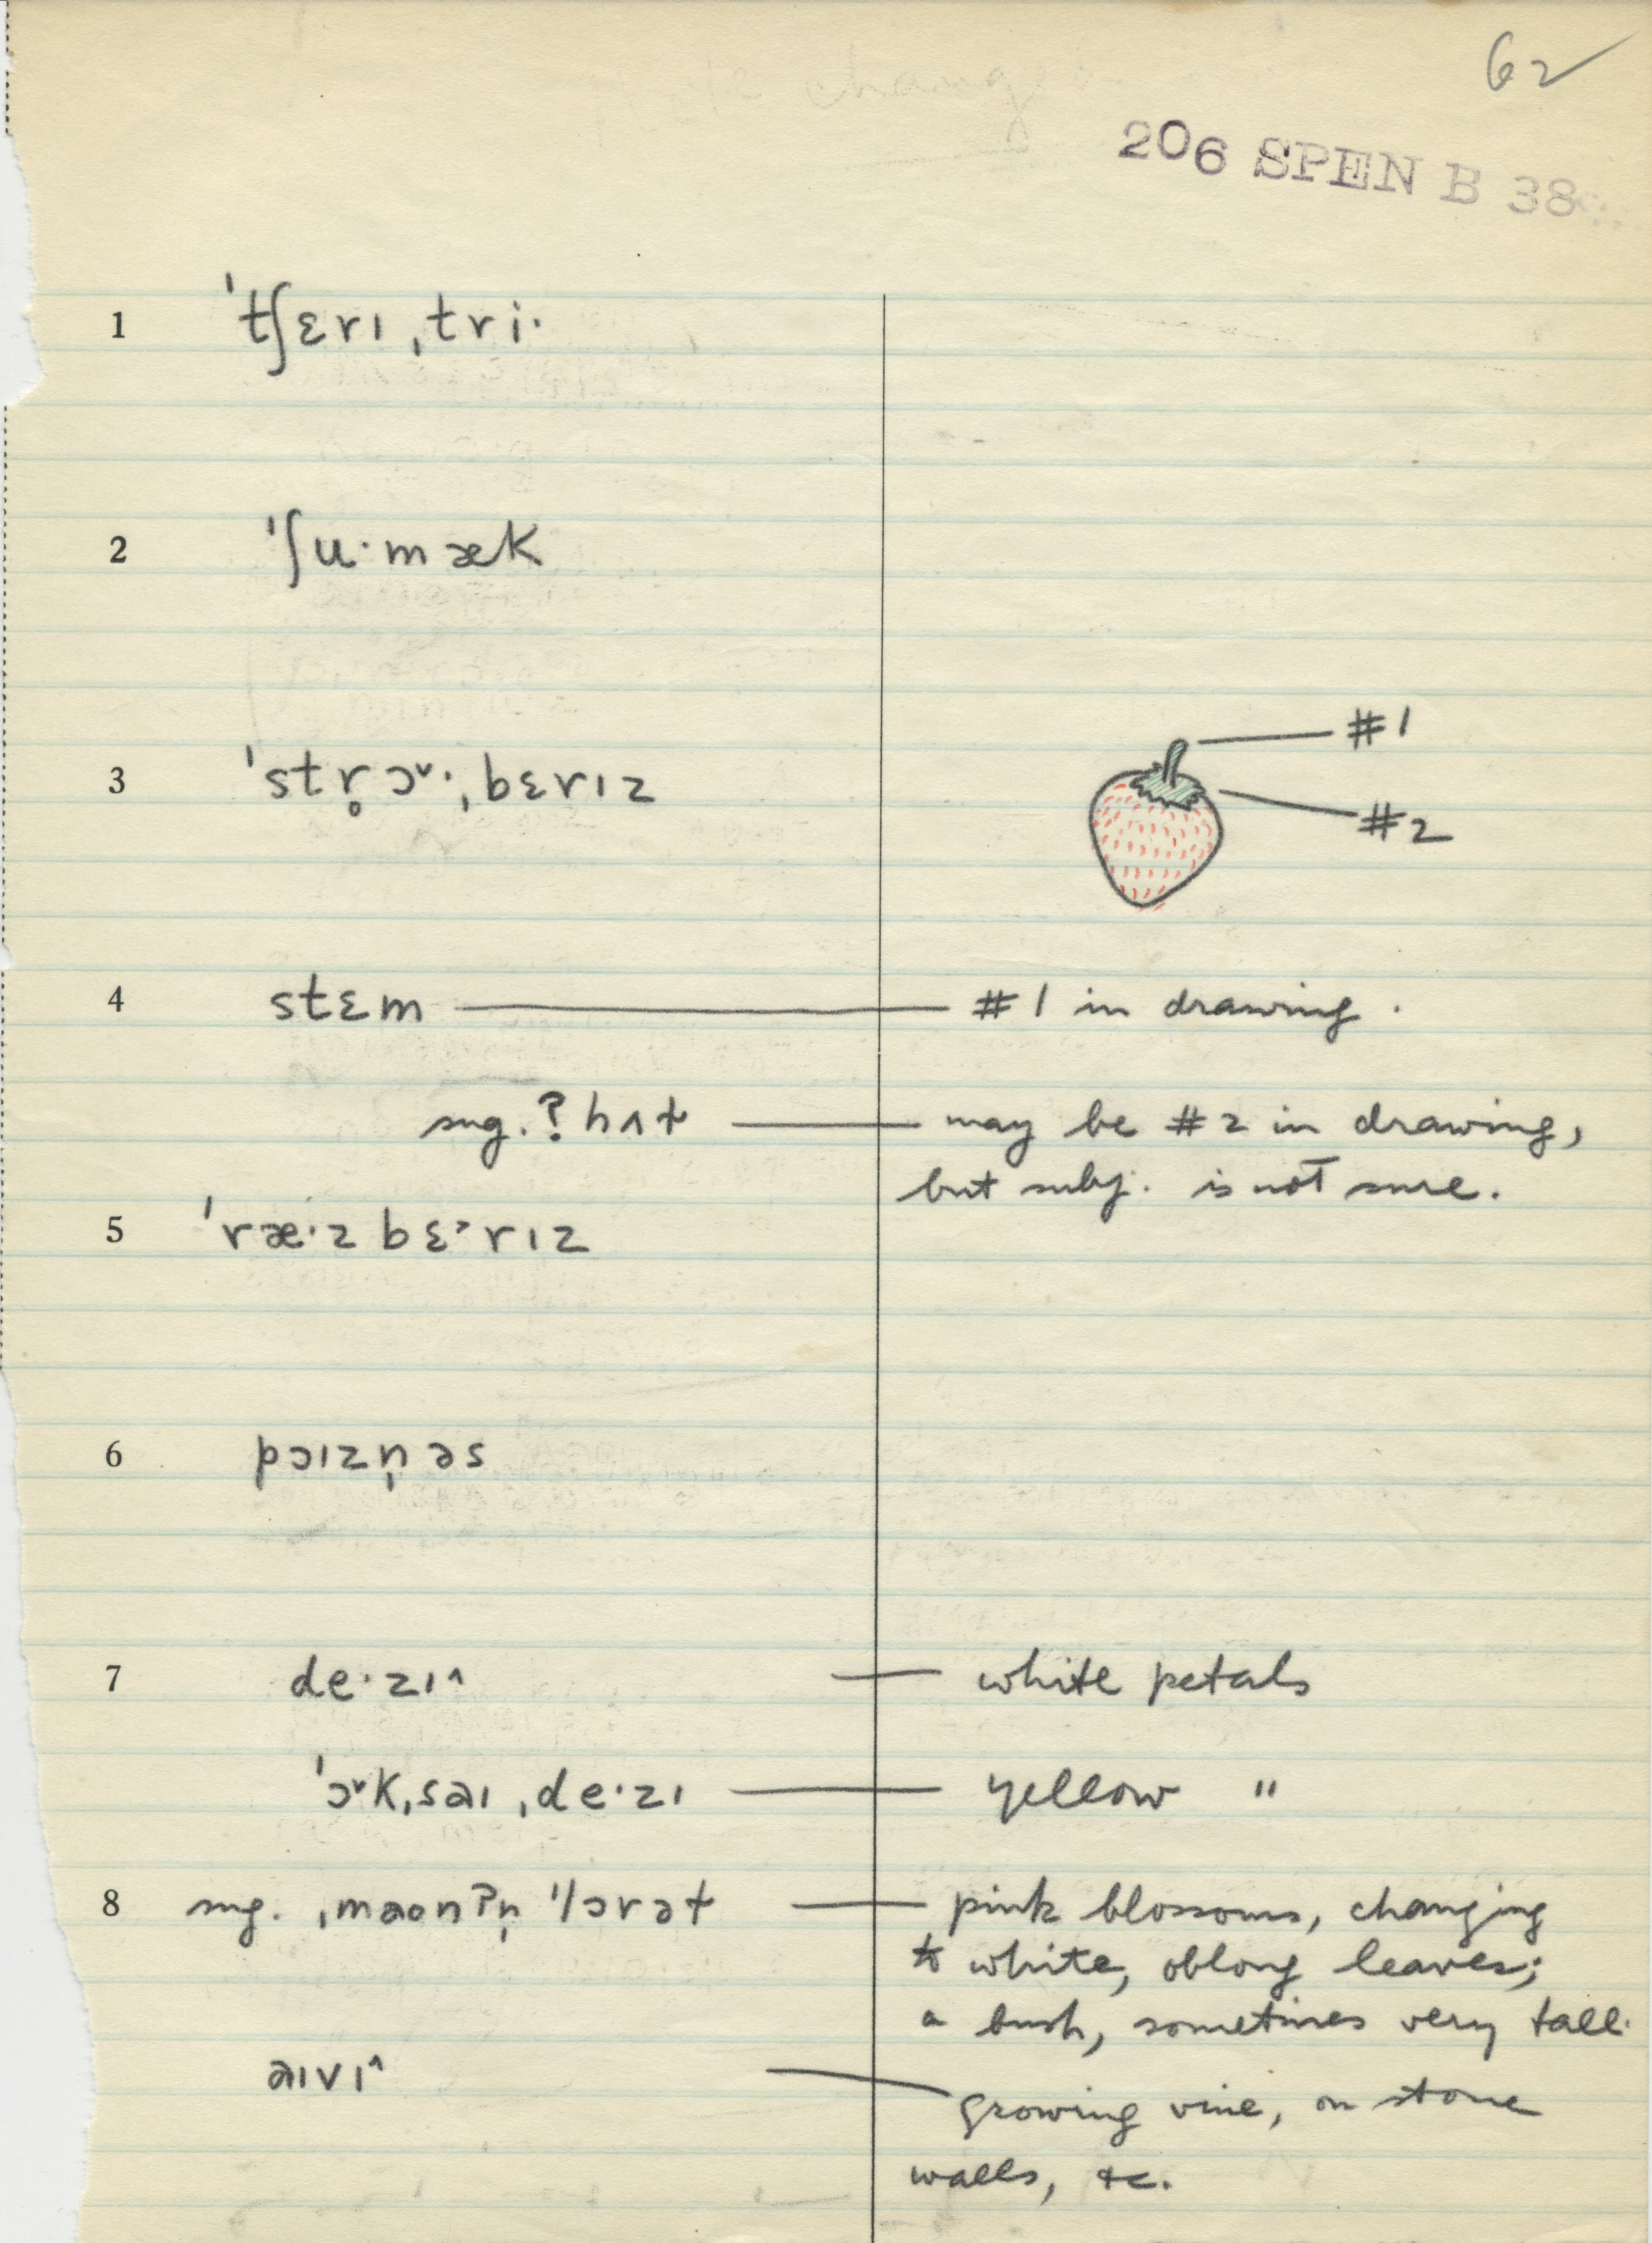 62
206 SPEN B 38
1 ˈtʃɛrɪ ˌtri·
2 ˈʃu·mæk
3 ˈstr̥ɔ˅·ˌbɛrɪz
#1
#2
4 stɛm — #1 in drawing.
sug. ? hʌt — may be #2 in drawing,
but subj. is not sure.
5 ˈræ·z bɛ˃rɪz
6 pɔɪzn̩ əs
7 de·zɪ^ — white petals
ˈɔ˅kˌsaɪ ˌde·zɪ — yellow "
8 sug. ˌmaʊnʔn̩ ˈlɔrət — pink blossoms, changing
to white, oblong leaves;
a bush, sometimes very tall.
aɪvɪ^ — growing vine, on stone
walls, &c.